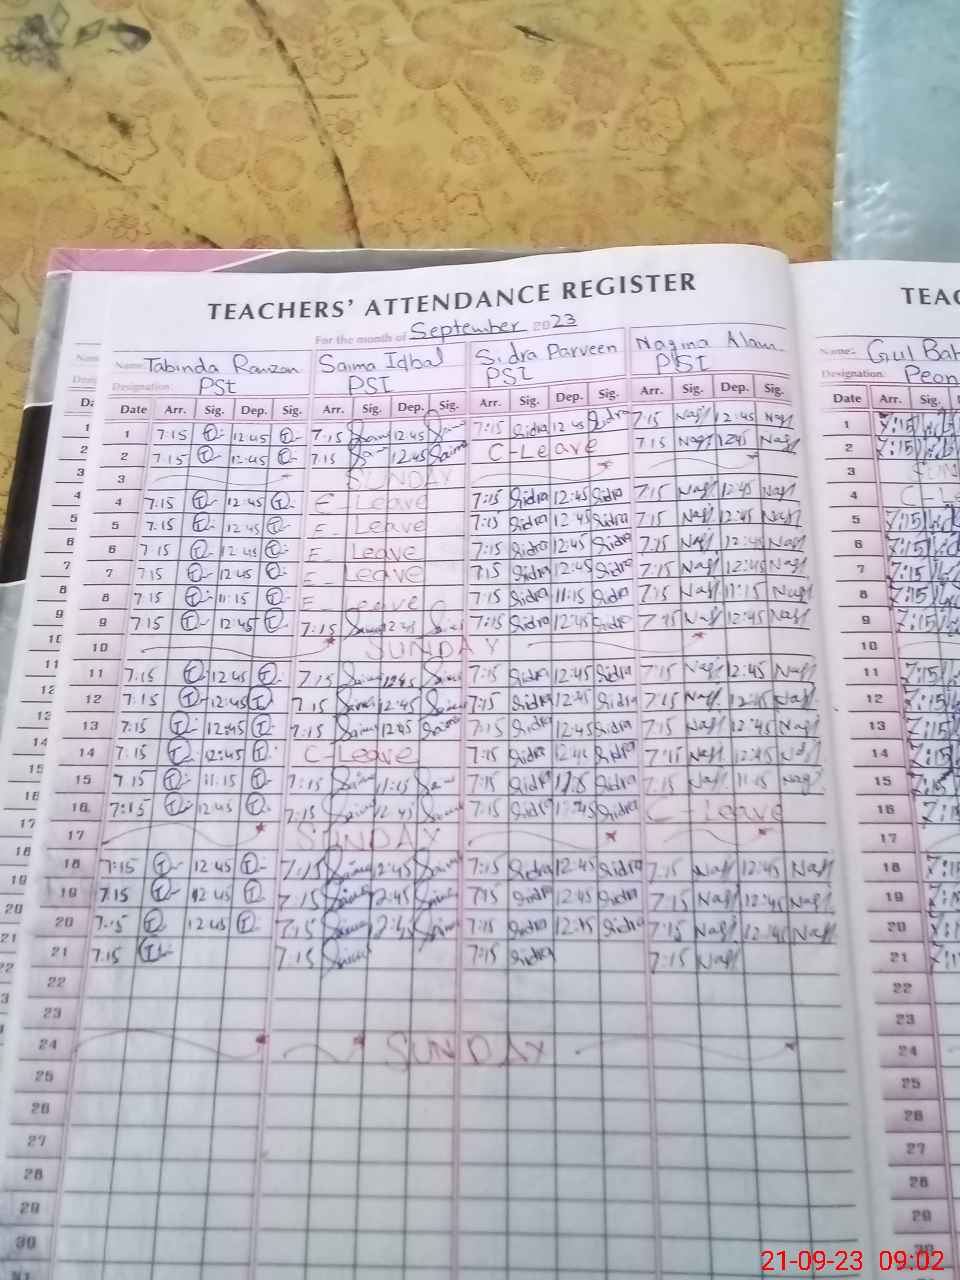 TEACHERS' ATTENDANCE REGISTER
For the month of September 2023
Name: Tabinda Ramzan Saima Iqbal Sidra Parveen Nagina Alam
Designation: PST PST PST PST
Date Arr. Sig. Dep. Sig. Arr. Sig. Dep. Sig. Arr. Sig. Dep. Sig. Arr. Sig. Dep. Sig.
1 7:15 T 12:45 T 7:15 Saima 12:45 Saima 7:15 Sidra 12:45 Sidra 7:15 12:45
2 7:15 T 12:45 T 7:15 12:45 Saima C-Leave 7:15 12:45
3 SUNDAY
4 7:15 T 12:45 T E-Leave 7:15 Sidra 12:45 Sidra 7:15 12:45
5 7:15 T 12:45 T E-Leave 7:15 Sidra 12:45 Sidra 7:15 12:45
6 7:15 T 12:45 T E-Leave 7:15 Sidra 12:45 Sidra 7:15 12:45
7 7:15 T 12:45 T E-Leave 7:15 Sidra 12:45 Sidra 7:15 12:45
8 7:15 T 11:15 T E-Leave 7:15 Sidra 11:15 Sidra 7:15 11:15
9 7:15 T 12:45 T 7:15 Saima 12:45 7:15 Sidra 12:45 Sidra 7:15 12:45
10 SUNDAY
11 7:15 T 12:45 T 7:15 Saima 12:45 Saima 7:15 Sidra 12:45 Sidra 7:15 12:45
12 7:15 T 12:45 T 7:15 Saima 12:45 Saima 7:15 Sidra 12:45 Sidra 7:15 12:45
13 7:15 T 12:45 T 7:15 Saima 12:45 Saima 7:15 Sidra 12:45 Sidra 7:15 12:45
14 7:15 T 12:45 T C-Leave 7:15 Sidra 12:45 Sidra 7:15 12:45
15 7:15 T 11:15 T 7:15 Saima 11:15 7:15 Sidra 11:15 Sidra 7:15 11:15
16 7:15 T 12:45 T 7:15 Saima 12:45 Saima 7:15 Sidra 12:45 Sidra C-Leave
17 SUNDAY
18 7:15 T 12:45 T 7:15 Saima 12:45 Saima 7:15 Sidra 12:45 Sidra 7:15 12:45
19 7:15 T 12:45 T 7:15 Saima 12:45 Saima 7:15 Sidra 12:45 Sidra 7:15 12:45
20 7:15 T 12:45 T 7:15 Saima 12:45 Saima 7:15 Sidra 12:45 Sidra 7:15 12:45
21 7:15 T 7:15 Saima 7:15 Sidra 7:15
22
23
24 SUNDAY
25
26
27
28
29
30
31
TEAC
Name: Gul Bah
Designation: Peon
Date Arr. Sig.
1 7:15
2 7:15
3 SUN
4 C-L
5 7:15
6 7:15
7 7:15
8 7:15
9 7:15
10
11 7:15
12 7:15
13 7:15
14 7:15
15 7:15
16 7:15
17
18 7:15
19 7:15
20 7:15
21 7:15
22
23
24
25
26
27
28
29
30
21-09-23 09:02